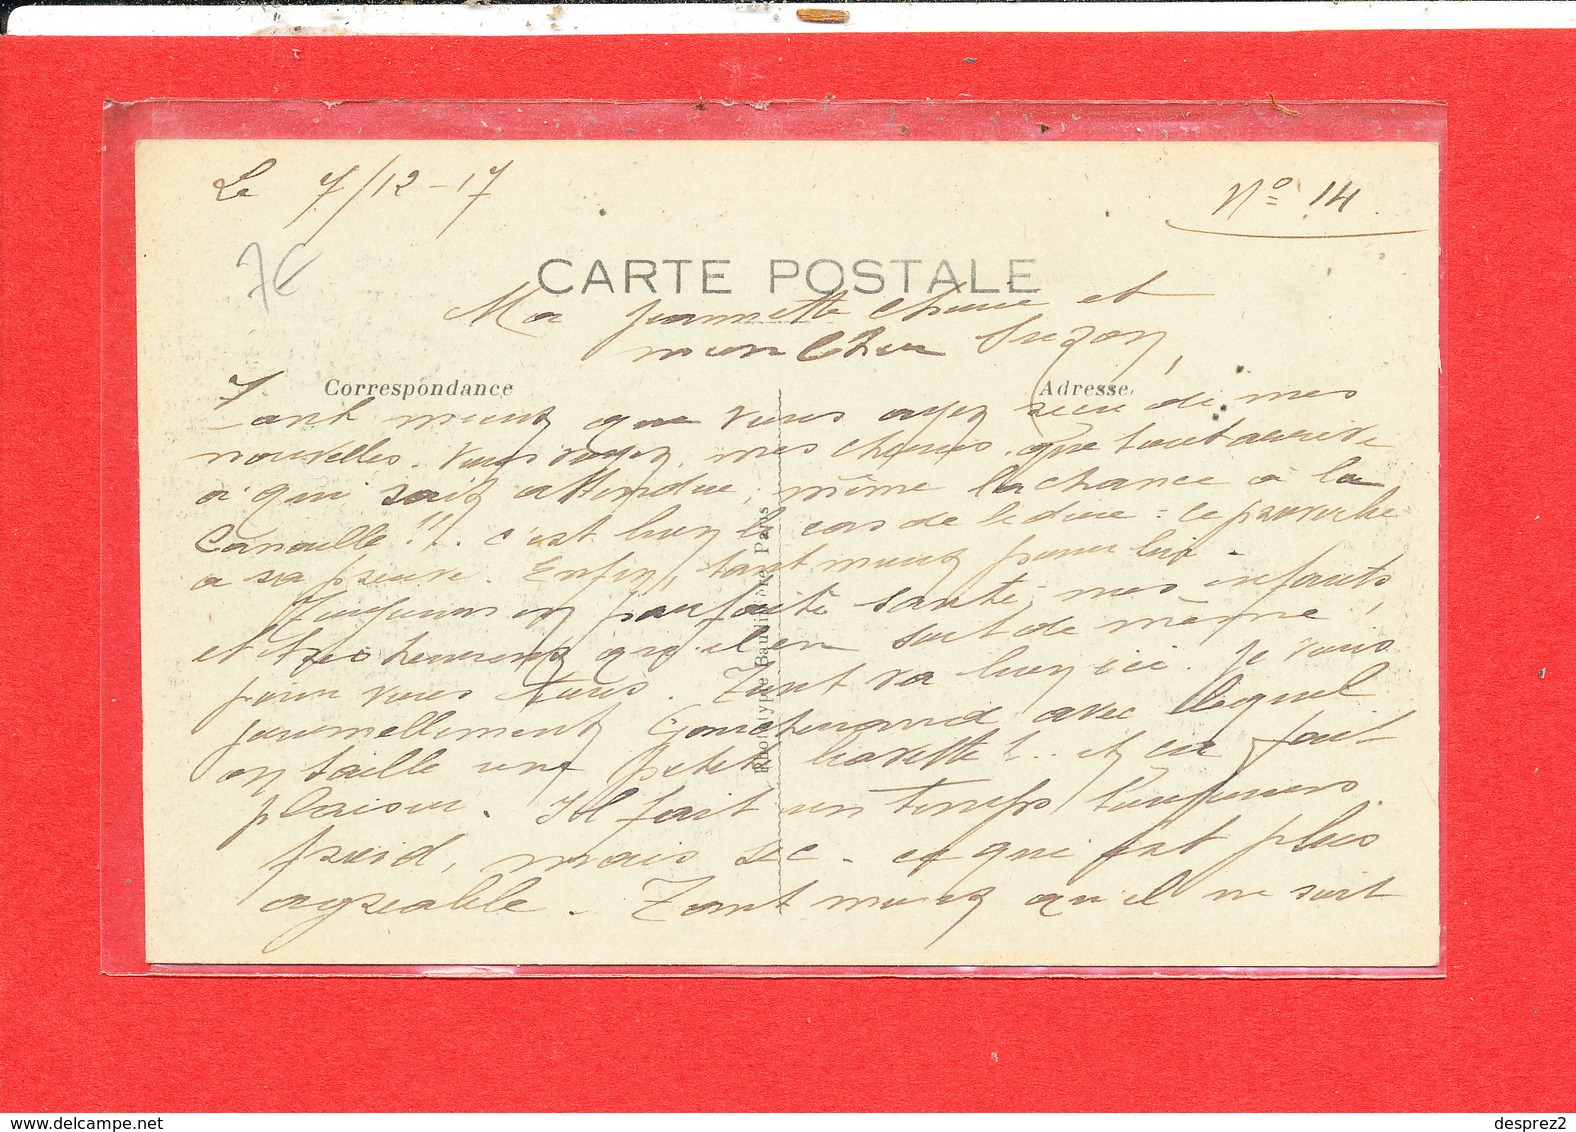 Le 7/12-17
Nº 14
7€
CARTE POSTALE
Ma Jeannette chérie et
mon cher Suzon,
Correspondance
Adresse
Tant mieux que vous ayez reçu de mes
nouvelles. Vous voyez, mes chéries, que tout arrive
à qui sait attendre, même la chance à la
Canaille!!. c'est bien le cas de le dire = Ce
a sa . Enfin, tant mieux pour lui.
Toujours en parfaite santé, mes enfants,
et très heureux qu'il en soit de même
pour vous tous. Tout va bien ici. Je vois
journellement avec lequel
on taille une petite bavette!.. et ça fait
plaisir. Il fait un temps toujours
froid, mais sec. ce qui est plus
agréable. Tant mieux qu'il ne soit
Phototypie Baudinière, Paris
desprez2